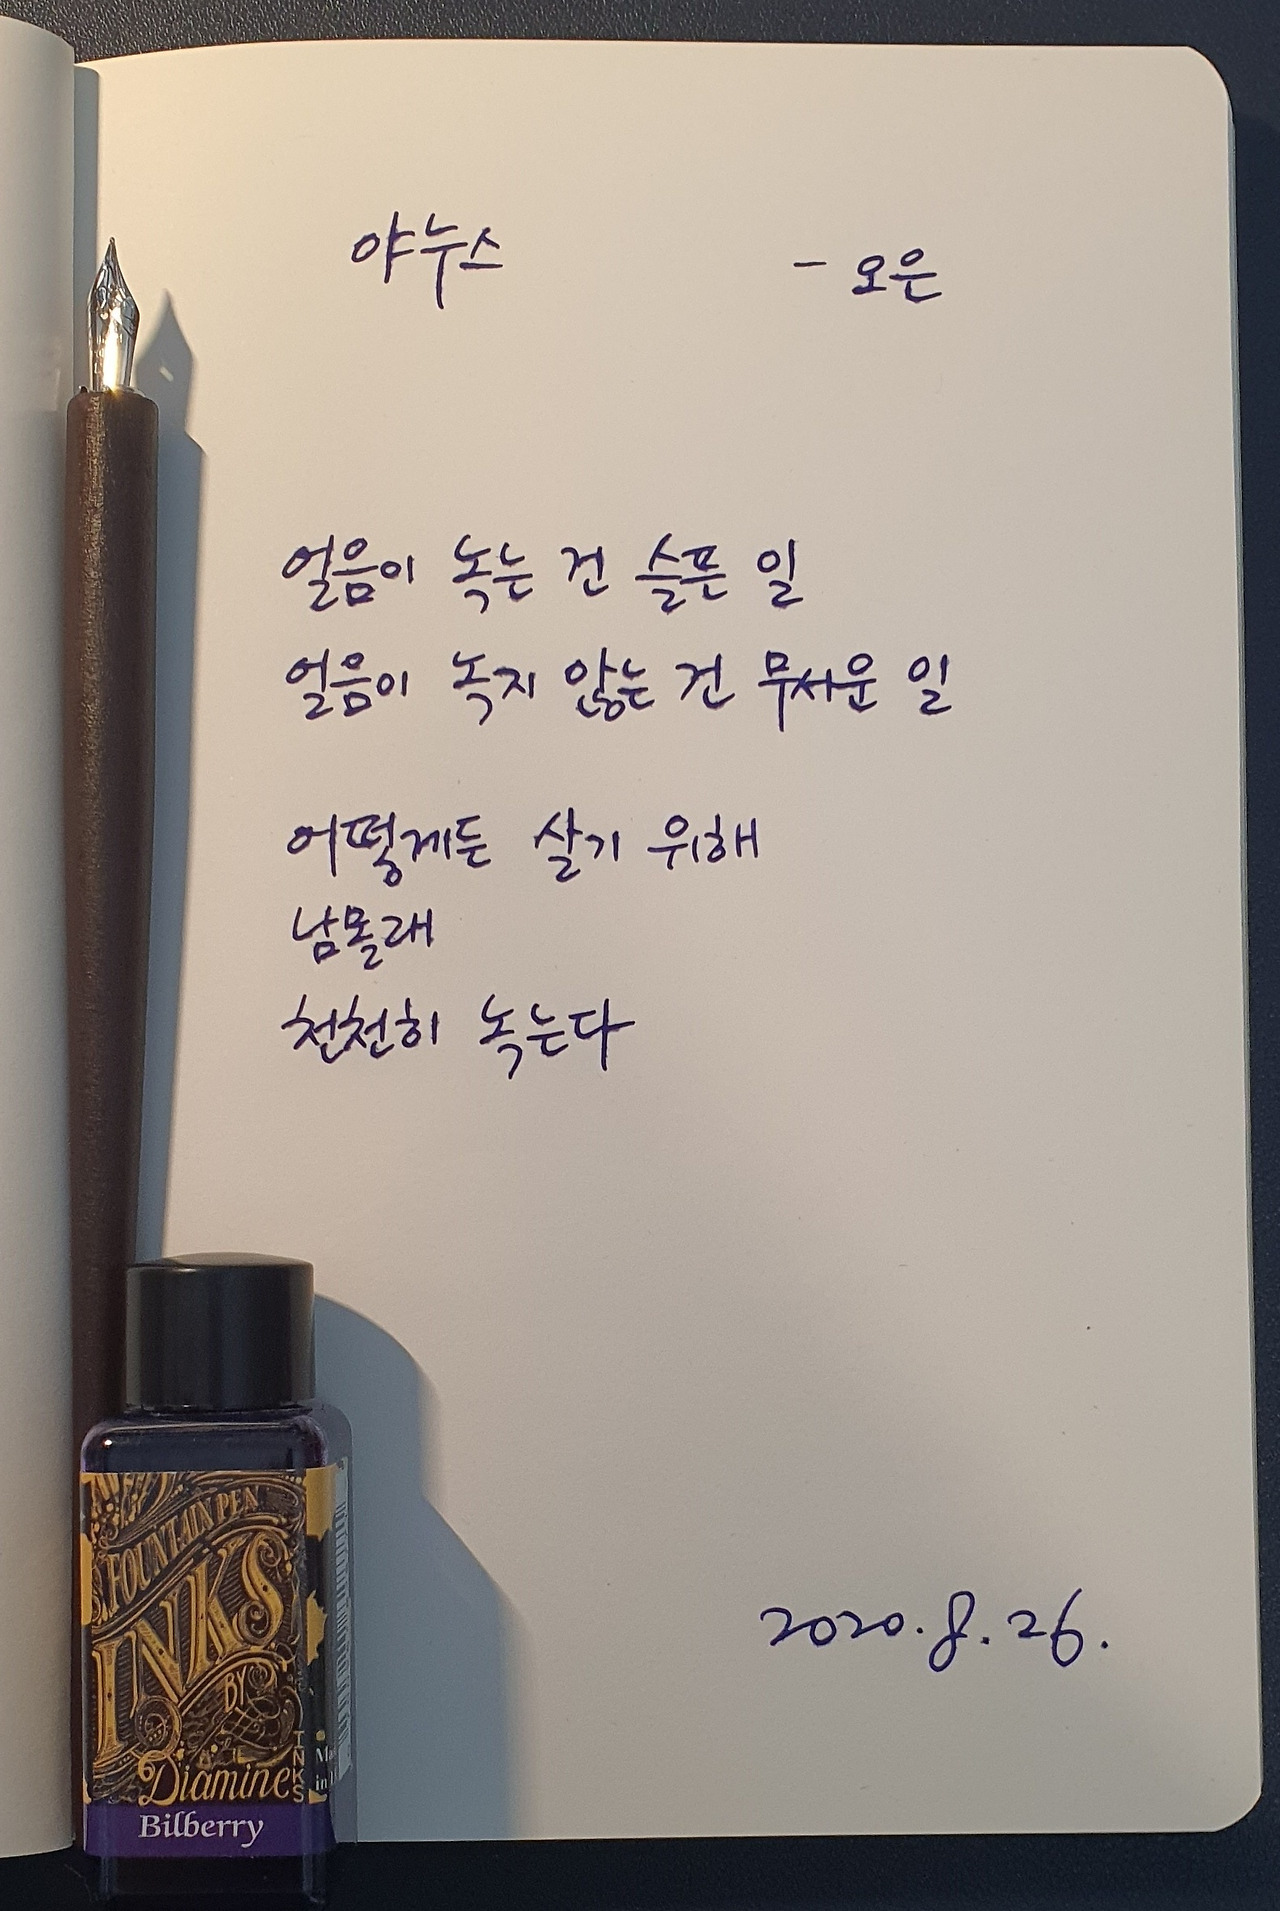 야누스 - 오은
얼음이 녹는 건 슬픈 일
얼음이 녹지 않는 건 무서운 일
어떻게든 살기 위해
남몰래
천천히 녹는다
2020. 8. 26.
FOUNTAIN PEN
INKS
BY
Diamine
INKS
Bilberry